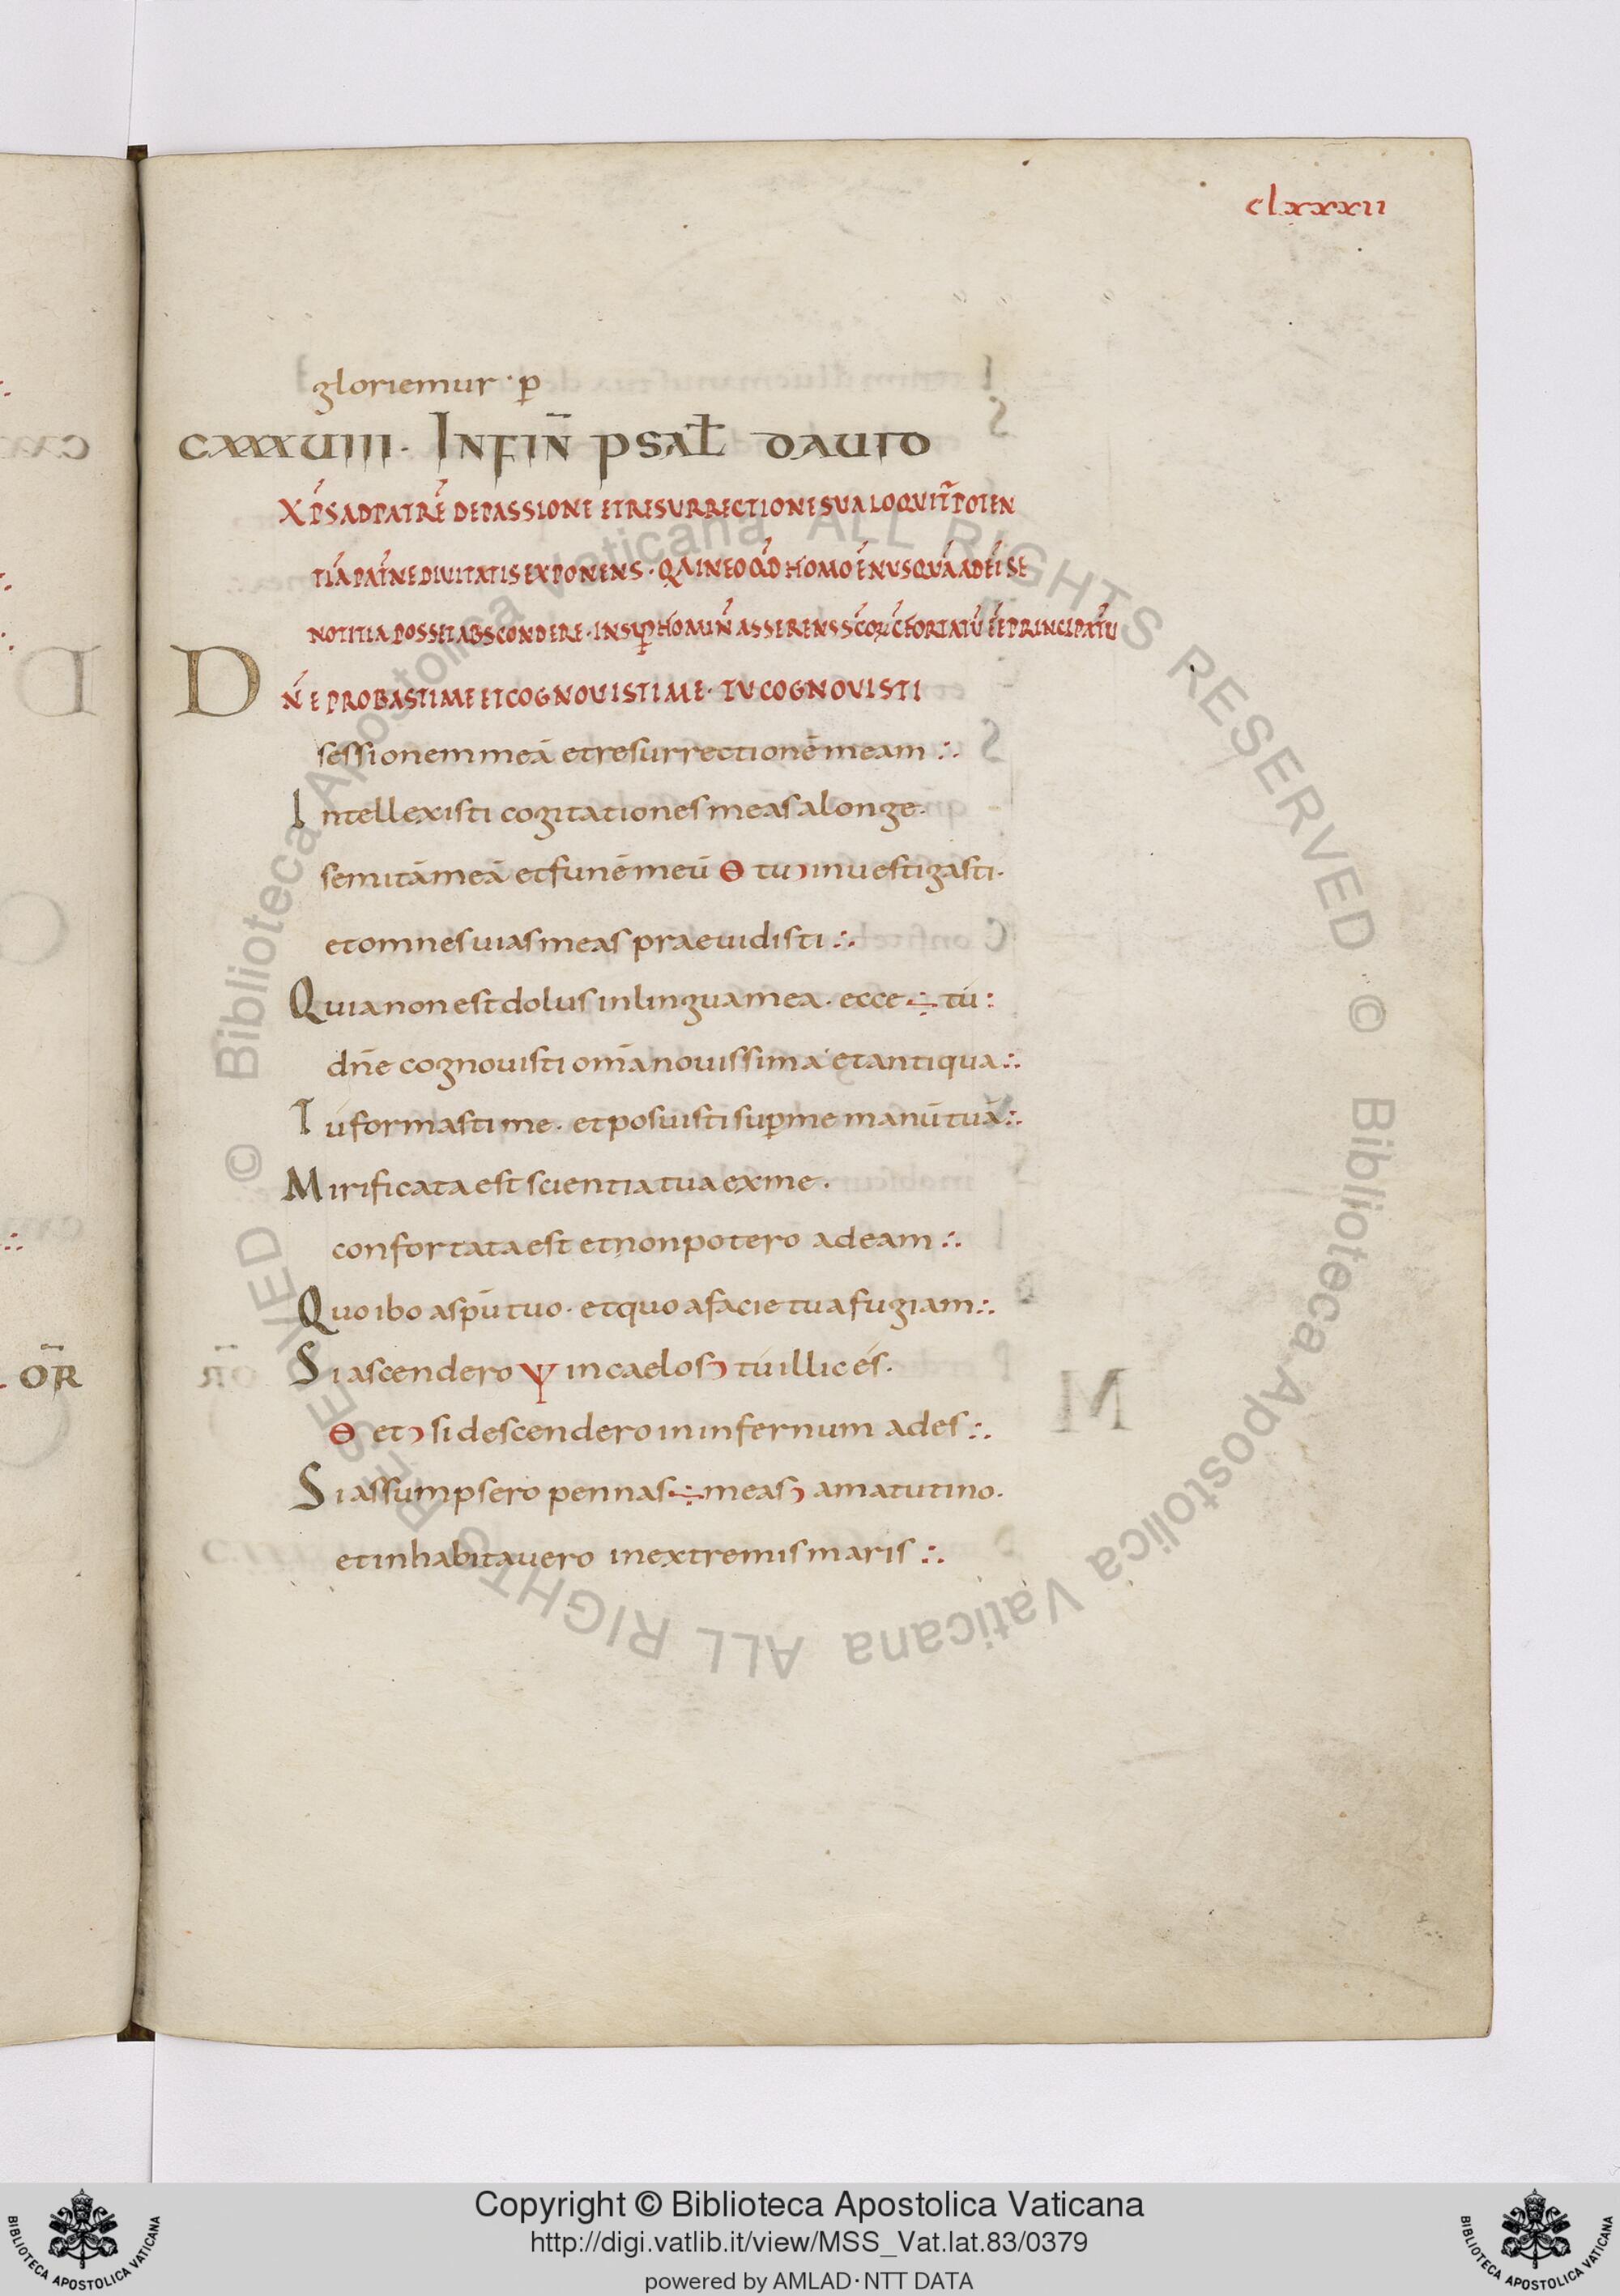 clxxxii
gloriemur · ꝑ
CXXXVIII · INFIN̄ PSAŁ DAVID
XP̄S AD PATRĒ DE PASSIONE ET RESURRECTIONE SUA LOQUIT̄ POTEN
TIĀ PAT̄NE DIVITATIS EXPONENS · QA IN EO QD̄ HOMO Ē NUSQUĀ A DĒI SE
NOTITIA POSSIT ABSCONDERE · INSUP̄ HOMIN̄ ASSERENS SC̄ORꝜ C̄FORTATŪ ĒE PRINCIPATŪ
DN̄E PROBASTI ME ET COGNOVISTI ME · TU COGNOVISTI
sessionem meā et resurrectionē meam ∴
Intellexisti cogitationes meas a longe ·
semitā meā et funē meū Θ tu ꓛ investigasti ·
et omnes vias meas praevidisti ∴
Quia non est dolus in lingua mea · ecce ÷ tú :
dn̄e cognovisti om̄a novissima et antiqua ∴
Tú formasti me · et posuisti suꝑ me manū tuā ∴
Mirificata est scientia tua ex me ·
confortata est et non potero ad eam ∴
Quo ibo a sp̄u tuo · et quo a facie tua fugiam ∴
Si ascendero Ѱ in caelos ꓛ tú illic és ·
Θ et ꓛ si descendero in infernum ades ∴
Si assumpsero pennas ÷ meas ꓛ a matutino ·
et inhabitavero in extremis maris ∴
OR̄
© Biblioteca Apostolica Vaticana ALL RIGHTS RESERVED © Biblioteca Apostolica Vaticana ALL RIGHTS RESERVED
Copyright © Biblioteca Apostolica Vaticana
http://digi.vatlib.it/view/MSS_Vat.lat.83/0379
powered by AMLAD · NTT DATA
BIBLIOTECA APOSTOLICA VATICANA
BIBLIOTECA APOSTOLICA VATICANA